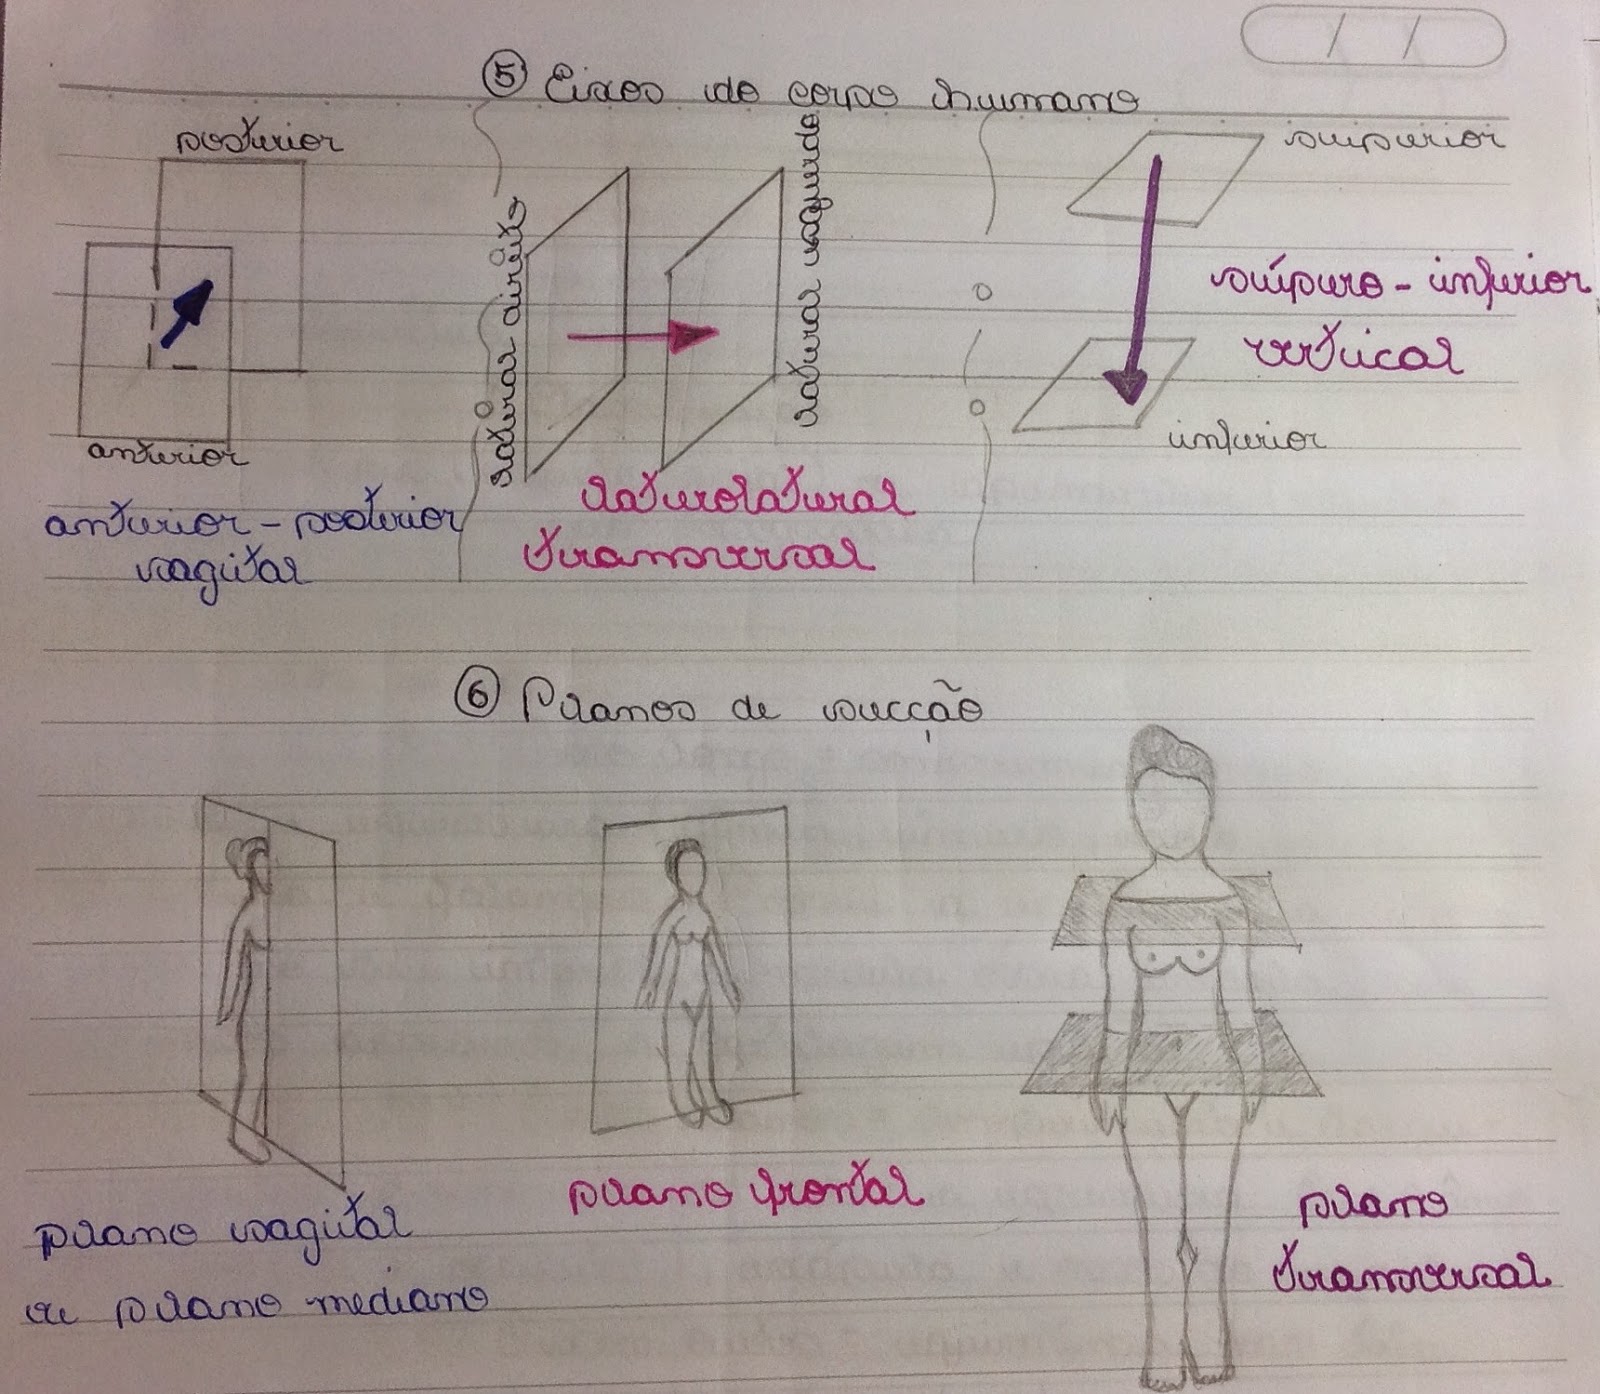 5 Eixos do corpo humano
posterior
anterior
anterior - posterior
sagital
lateral direito
lateral esquerdo
laterolateral
transversal
superior
súpero - inferior
vertical
inferior
6 Planos de secção
plano sagital
ou plano mediano
plano frontal
plano
transversal